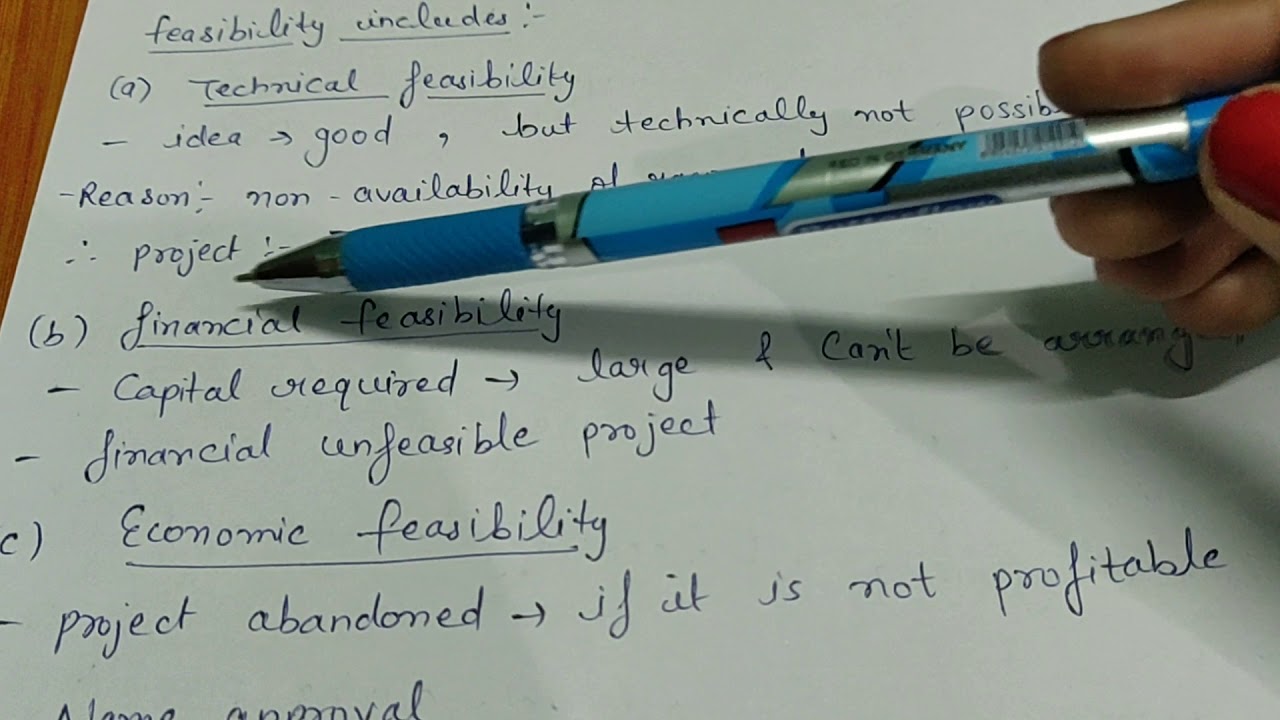 feasibility includes :-
(a) Technical feasibility
- idea → good , but technically not
-Reason:- non-availability of
∴ project :-
(b) financial feasibility
- Capital required → large & Can't be
- financial unfeasible project
c) Economic feasibility
- project abandoned → if it is not profitable
approval